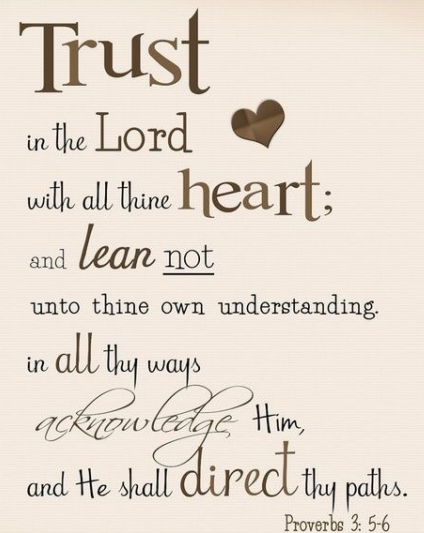 Trust
in the Lord
with all thine heart;
and lean not
unto thine own understanding.
in all thy ways
acknowledge Him,
and He shall direct thy paths.
Proverbs 3: 5-6